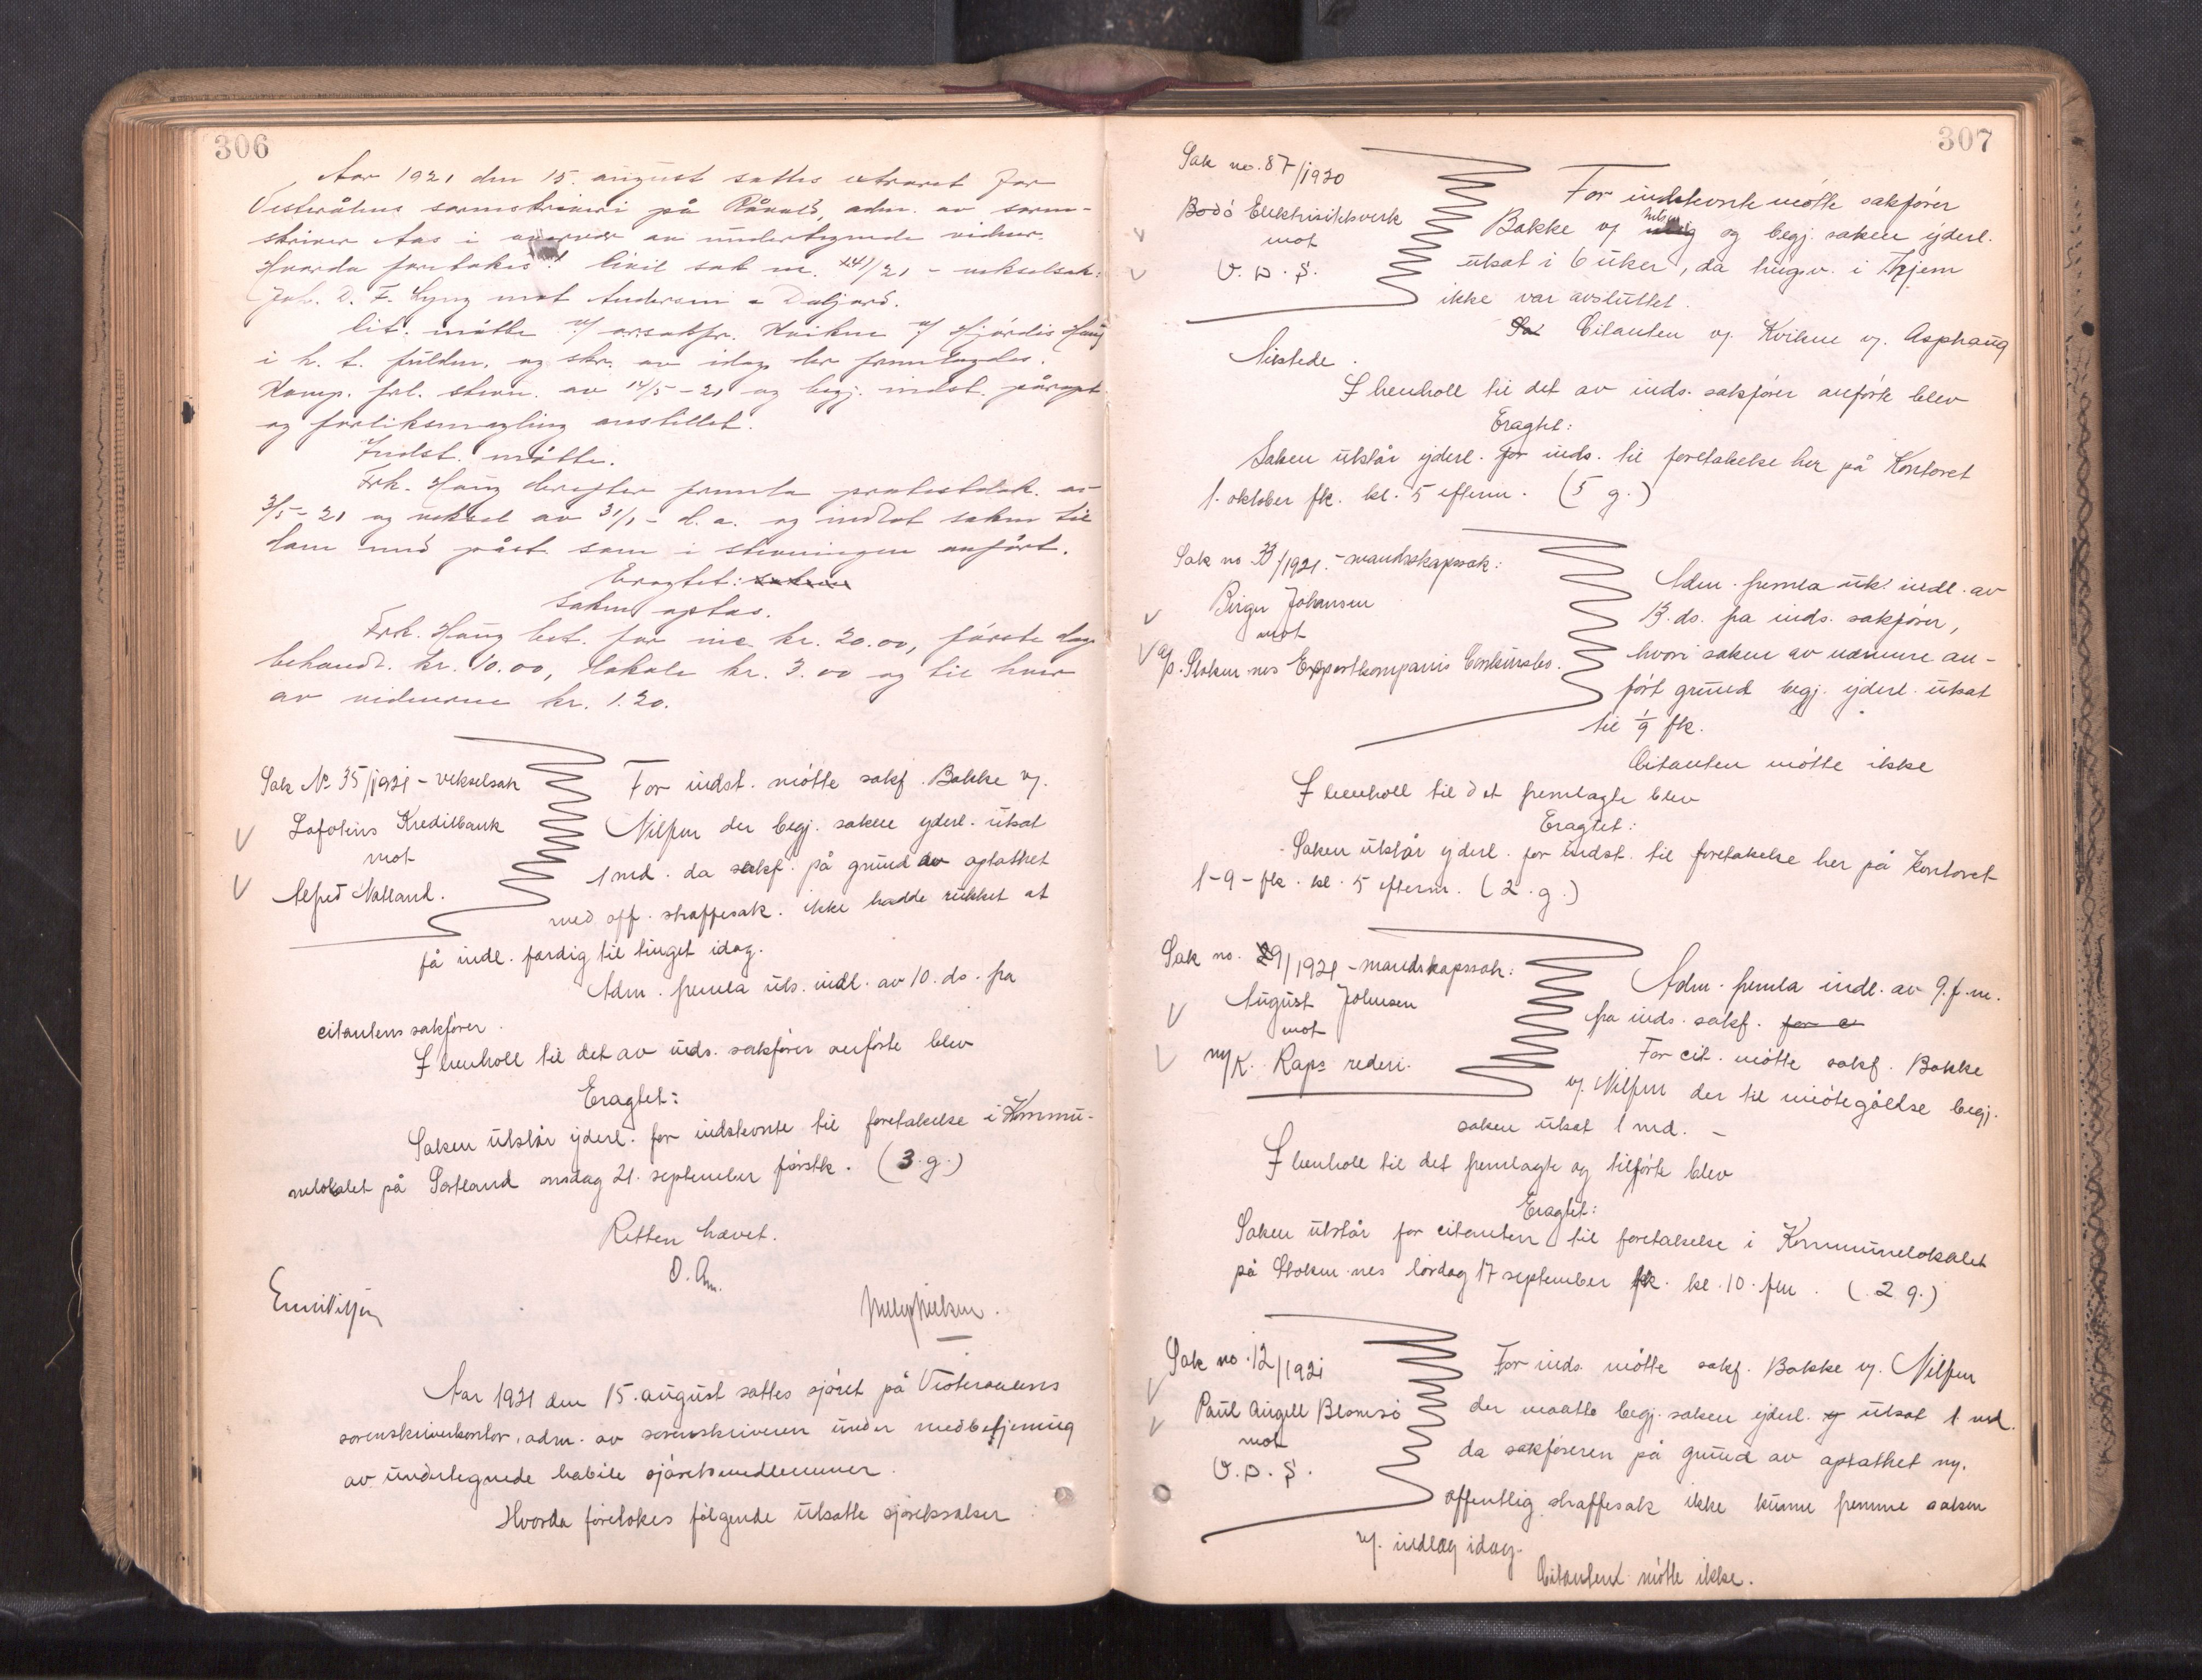 306
Aar 1921 den 15. august sattes extraret for
Vesterålens sorenskriveri på Råvald, adm. av soren-
skriver Aas i nærvær av undertegnede vidner.
Hvorda foretokes: Civil sak nr. 141/21 - vekselsak:
Joh. D. F. Lyng mot Andersen & Daljord.
Cit. møtte v/ orsakfr. Kvikne v/ Hjørdis Haug
i h. t. fuldm. og skr. av idag der fremlagdes.
Komp. frl. stevn. av 14/5 - 21 og begj. indst. påropt
og forliksmegling anstillet.
Indst. møtte.
Frk. Haug derefter fremla protestdok. av
3/5 - 21 og veksel av 31/1 - d. a. og indlot saken til
dom med påst. som i stevningen anført.
Eragtet: saken
Saken optas.
Frk. Haug bet. for inc. kr. 20.00, første dags
behandl. kr. 10.00, lokale kr. 3.00 og til hver
av vidnerne kr. 1.20.
Sak No 35/1921 - vekselsak
Lofotens Kreditbank
mot
Alfred Natland.
For indst. møtte sakf. Bakke v/.
Nilsen der begj. saken yderl. utsat
1 md. da sakf. på grund av optathet
med off. straffesak. ikke hadde rukket at
få indl. færdig til tinget idag.
Adm. fremla uts. indl. av 10. ds. fra
citantens sakfører.
I henholl til det av inds. sakfører anførte blev
Eragtet:
Saken utstår yderl. for indstevnte til foretakelse i Kommu-
nelokalet på Sortland onsdag 21. september førstk. (3. g.)
Retten hævet.
O. Am.
Emmi Nilsen
Nelly Nielsen.
Aar 1921 den 15. august sattes sjøret på Vesteraalens
sorenskriverkontor, adm. av sorenskriveren under medbetjening
av undertegnede habile sjøretsmedlemmer.
Hvorda foretokes følgende utsatte sjøretssaker:
307
Sak no. 87/1920
Bodø Elektrisitetsverk
mot
V. D. S.
For indstevnte møtte sakfører
Bakke v/ Nilsen og begj. saken yderl.
utsat i 6 uker, da tingsv. i Hjem
ikke var avsluttet.
Sa Citanten v/. Kvikne v/. Asphaug
tilstede.
I henholl til det av inds. sakfører anførte blev
Eragtet:
Saken utstår yderl. for inds. til foretakelse her på Kontoret
1. oktober fk. kl. 5 efterm. (5 g.)
Sak no 33/1921. - mandskapssak:
Birger Johansen
mot
A/s. Stokmarknes Exportkompanis Konkursbo.
Adm. fremla utk. indl. av
13. ds. fra inds. sakfører,
hvori saken av nærmere an-
ført grund begj. yderl. utsat
til 1/9 fk.
Citanten møtte ikke
I henholl til det fremlagte blev
Eragtet:
Saken utstår yderl. for indst. til foretakelse her på Kontoret
1-9- fk. kl. 5 efterm. (2. g.)
Sak no. 29/1921 - mandskapssak:
August Johnsen
mot
M/K. Raps rederi.
Adm. fremla indl. av 9. f. m.
fra inds. sakf. for c
For cit. møtte sakf. Bakke
v/. Nilsen der til imøtegåelse begj.
saken utsat 1 md. -
I henholl til det fremlagte og tilførte blev
Eragtet:
Saken utstår for citanten til foretakelse i Kommunelokalet
på Stokm.nes lørdag 17 september fk. kl. 10. fm. (2 g.)
Sak no. 12/1921
Paul Angell Blomsø
mot
V. D. S.
For inds. møtte sakf. Bakke v/. Nilsen
der maatte begj. saken yderl. g utsat 1 md.
da sakføreren på grund av optathet m/.
offentlig straffesak ikke kunne fremme saken
v/. indlæg idag.
Citanten møtte ikke.